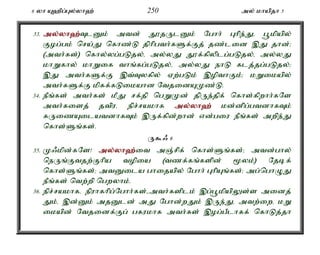 6 லா யுஹிப்புல்லாஹ் 250 அல் மாயிதா 5
33. அல்லாஹ்டனும் அவன் தூதருடனும் போர் புரிந்து, பூமியில்
குழப்பம் செய்து கொண்டு திரிபவர்களுக்குத் தண்டனை இது தான்:
(அவர்கள்) கொல்லப்படுதல், அல்லது தூக்கிலிடப்படுதல், அல்லது
மாறுகால் மாறுகை வாங்கப்படுதல், அல்லது நாடு கடத்தப்படுதல்;
இது அவர்களுக்கு இவ்வுலகில் ஏற்படும் இழிவாகும்; மறுமையில்
அவர்களுக்கு மிகக்கடுமையான வேதனையுமுண்டு.
34. நீங்கள் அவர்கள் மீது சக்தி பெறுமுன் திருந்திக் கொள்கிறார்களே
அவர்களைத் தவிர. நிச்சயமாக அல்லாஹ் மன்னிப்பவனாகவும்
கருணையுடையவனாகவும் இருக்கின்றான் என்பதை நீங்கள் அறிந்து
கொள்ளுங்கள்.
ருகூஃ 6
35. முஃமின்களே! அல்லாஹ்வை அஞ்சிக் கொள்ளுங்கள்; அவன்பால்
நெருங்குவதற்குரிய வழியை (வணக்கங்களின் மூலம்) தேடிக்
கொள்ளுங்கள்; அவனுடைய பாதையில் போர் புரியுங்கள்; அப்பொழுது
நீங்கள் வெற்றி பெறலாம்.
36. நிச்சயமாக, நிராகரிப்போர்கள்,அவர்களிடம் இப்பூமியிலுள்ள அனைத்
தும், இன்னும் அதனுடன் அது போன்றதும் இருந்து, அவற்றை, மறு
மையின் வேதனைக்குப் பகரமாக அவர்கள் இழப்பீடாகக் கொடுத்தா